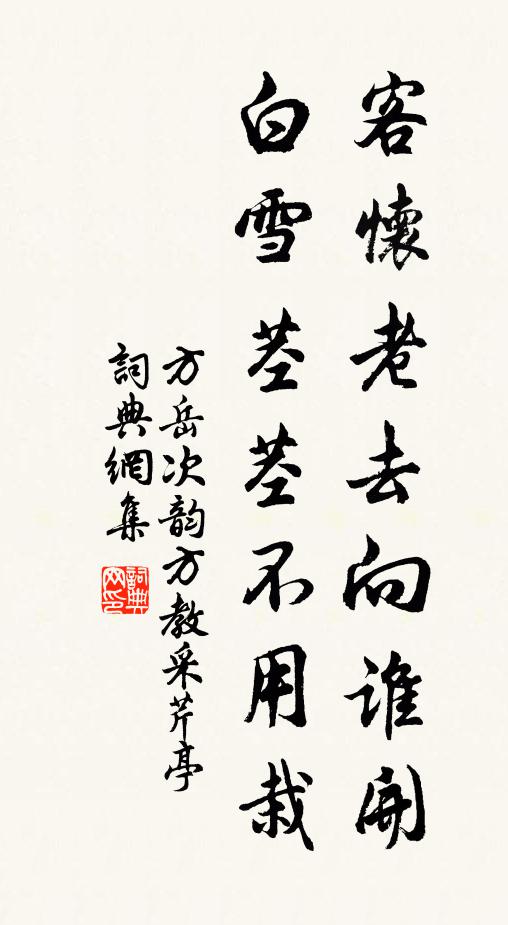 客懷老去向誰開
白雪茎茎不用栽
方岳次韵方教采芹亭
詞典網集
詞典網印